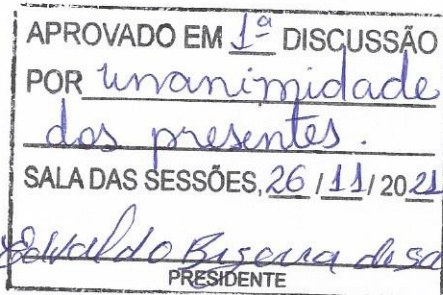 APROVADO EM 1ª DISCUSSÃO
POR unanimidade
dos presentes.
SALA DAS SESSÕES, 26 / 11 / 2021
Edvaldo Beserra de Sá
PRESIDENTE